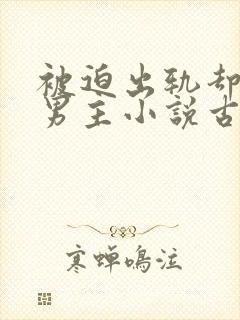 被迫出轨却
男主小説古
寒蝉鳴泣